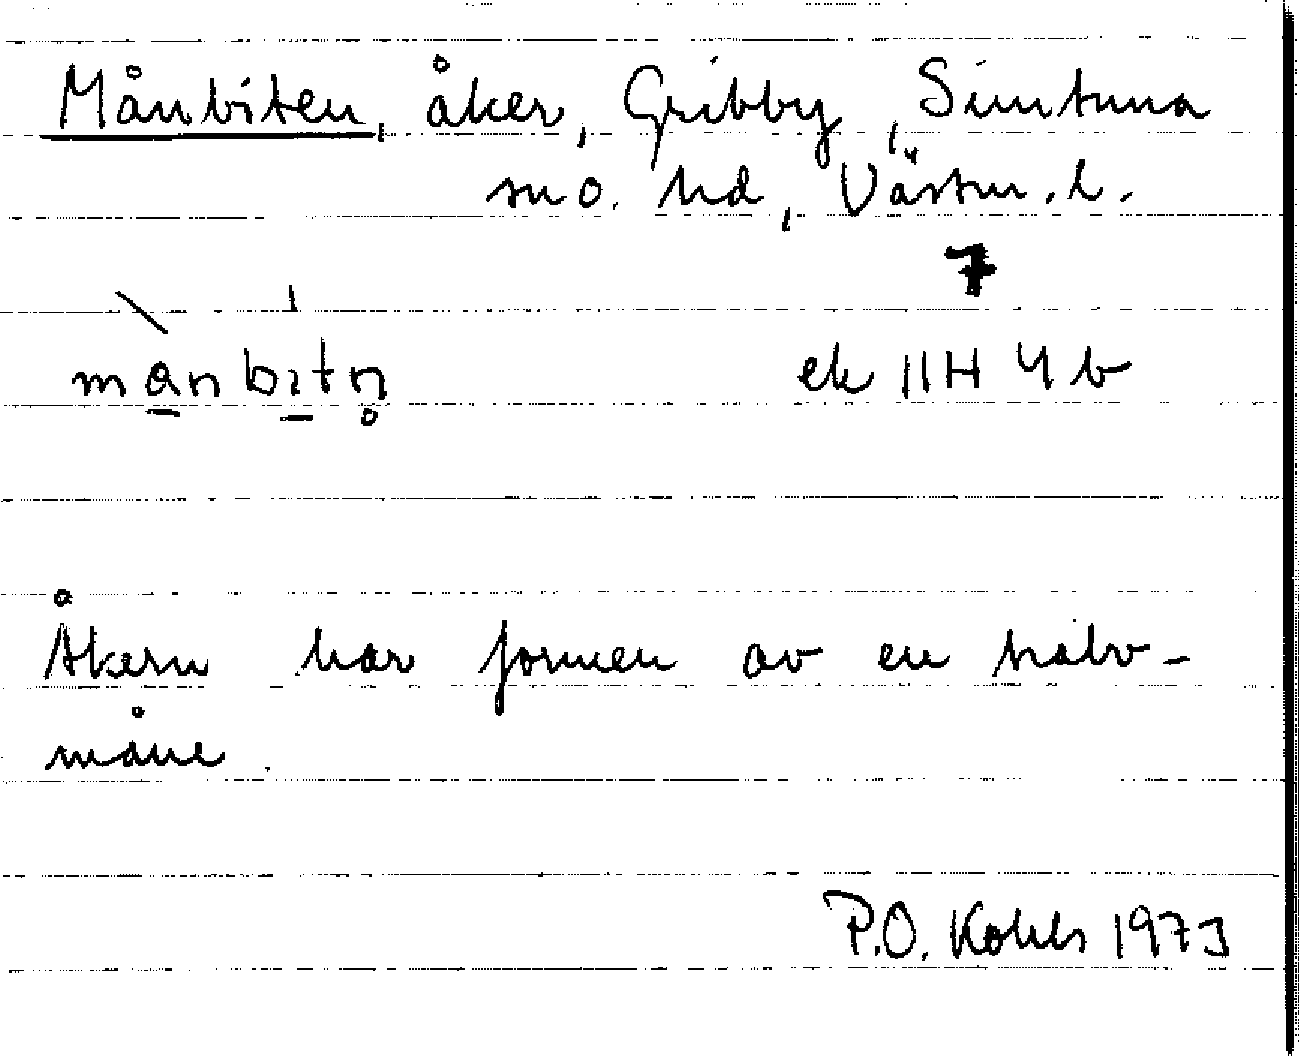 Månbiten, åker, Gribby, Simtuna
sn o. hd, Västm. l.
7
månbı̠tn̥ ek 11H 4b
Åkern har formen av en halv-
måne.
P.O. Kohls 1973